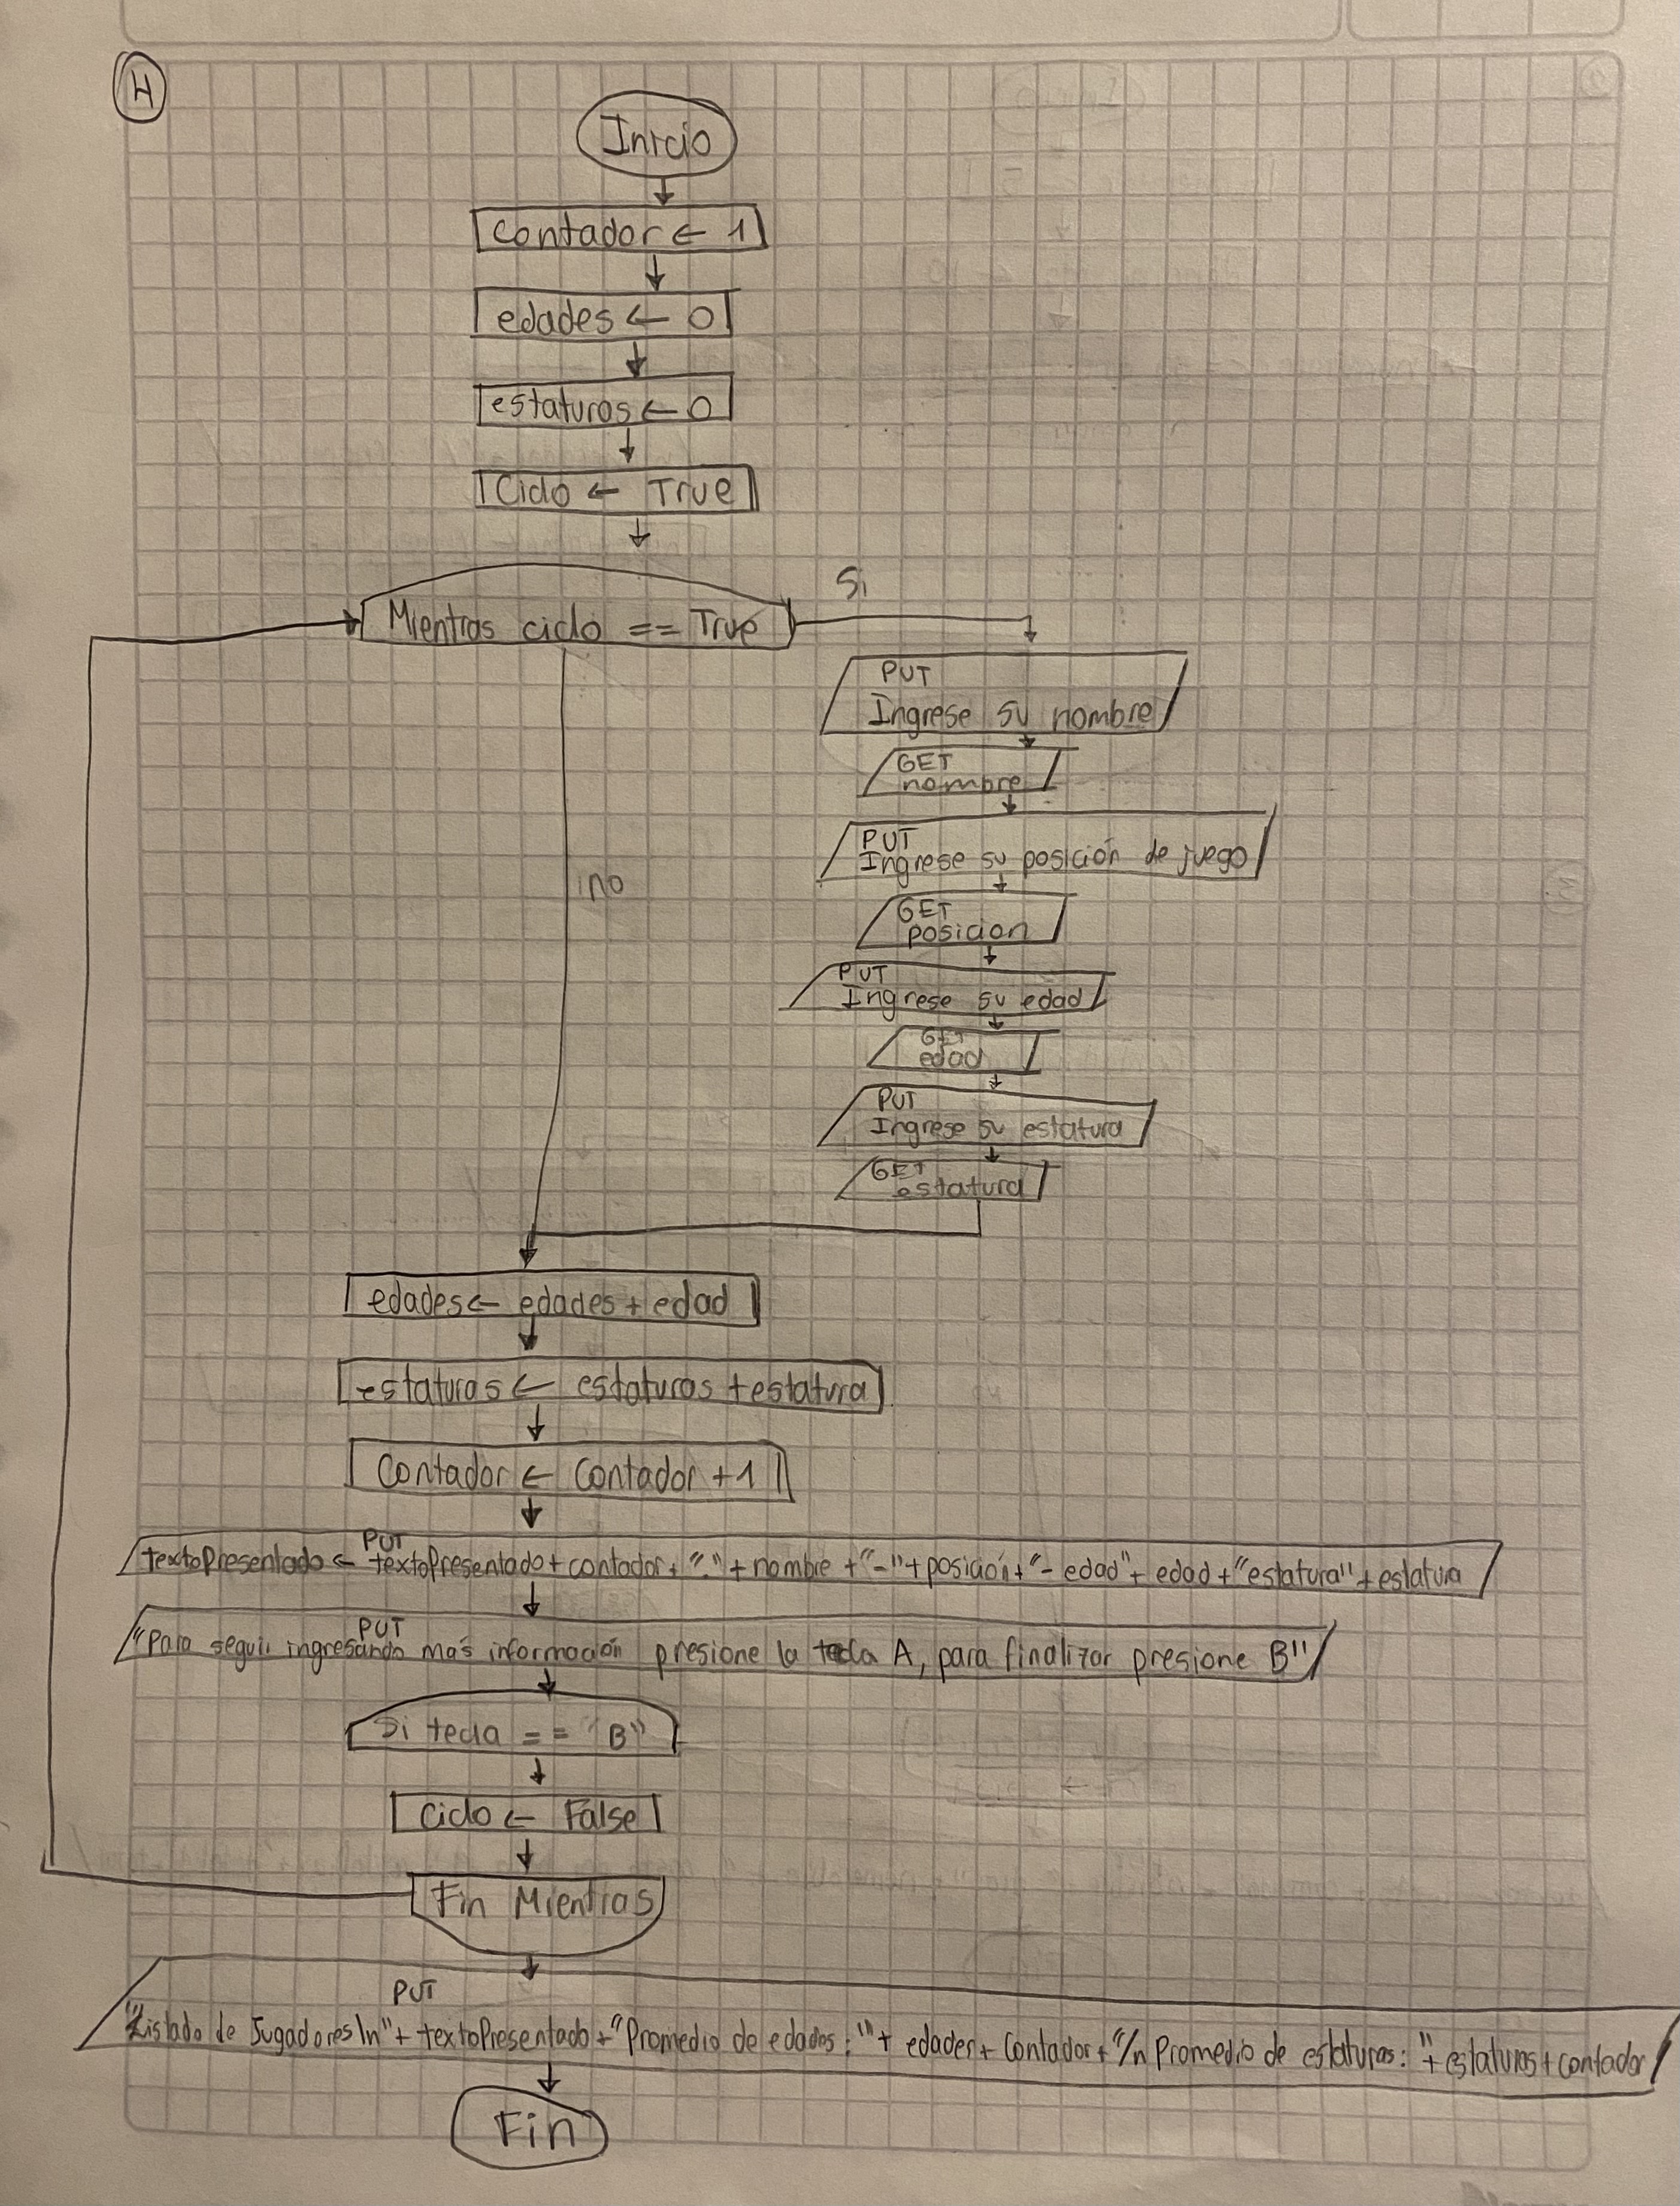 4
Inicio
Contador ← 1
edades ← 0
estaturas ← 0
Ciclo ← True
Si
Mientras ciclo == True
PUT
Ingrese su nombre
GET
nombre
PUT
Ingrese su posición de juego
no
GET
posicion
PUT
Ingrese su edad
GET
edad
PUT
Ingrese su estatura
GET
estatura
edades ← edades + edad
estaturas ← estaturas + estatura
Contador ← Contador + 1
PUT
textoPresentado ← textoPresentado + contador + "." + nombre + "-" + posición + "- edad" + edad + "estatura" + estatura
PUT
"Para seguir ingresando más información presione la tecla A, para finalizar presione B"
Si tecla == "B"
Ciclo ← False
Fin Mientras
PUT
"Listado de Jugadores\n" + textoPresentado + "Promedio de edades:" + edades + Contador + "/n Promedio de estaturas: " + estaturas + contador
Fin